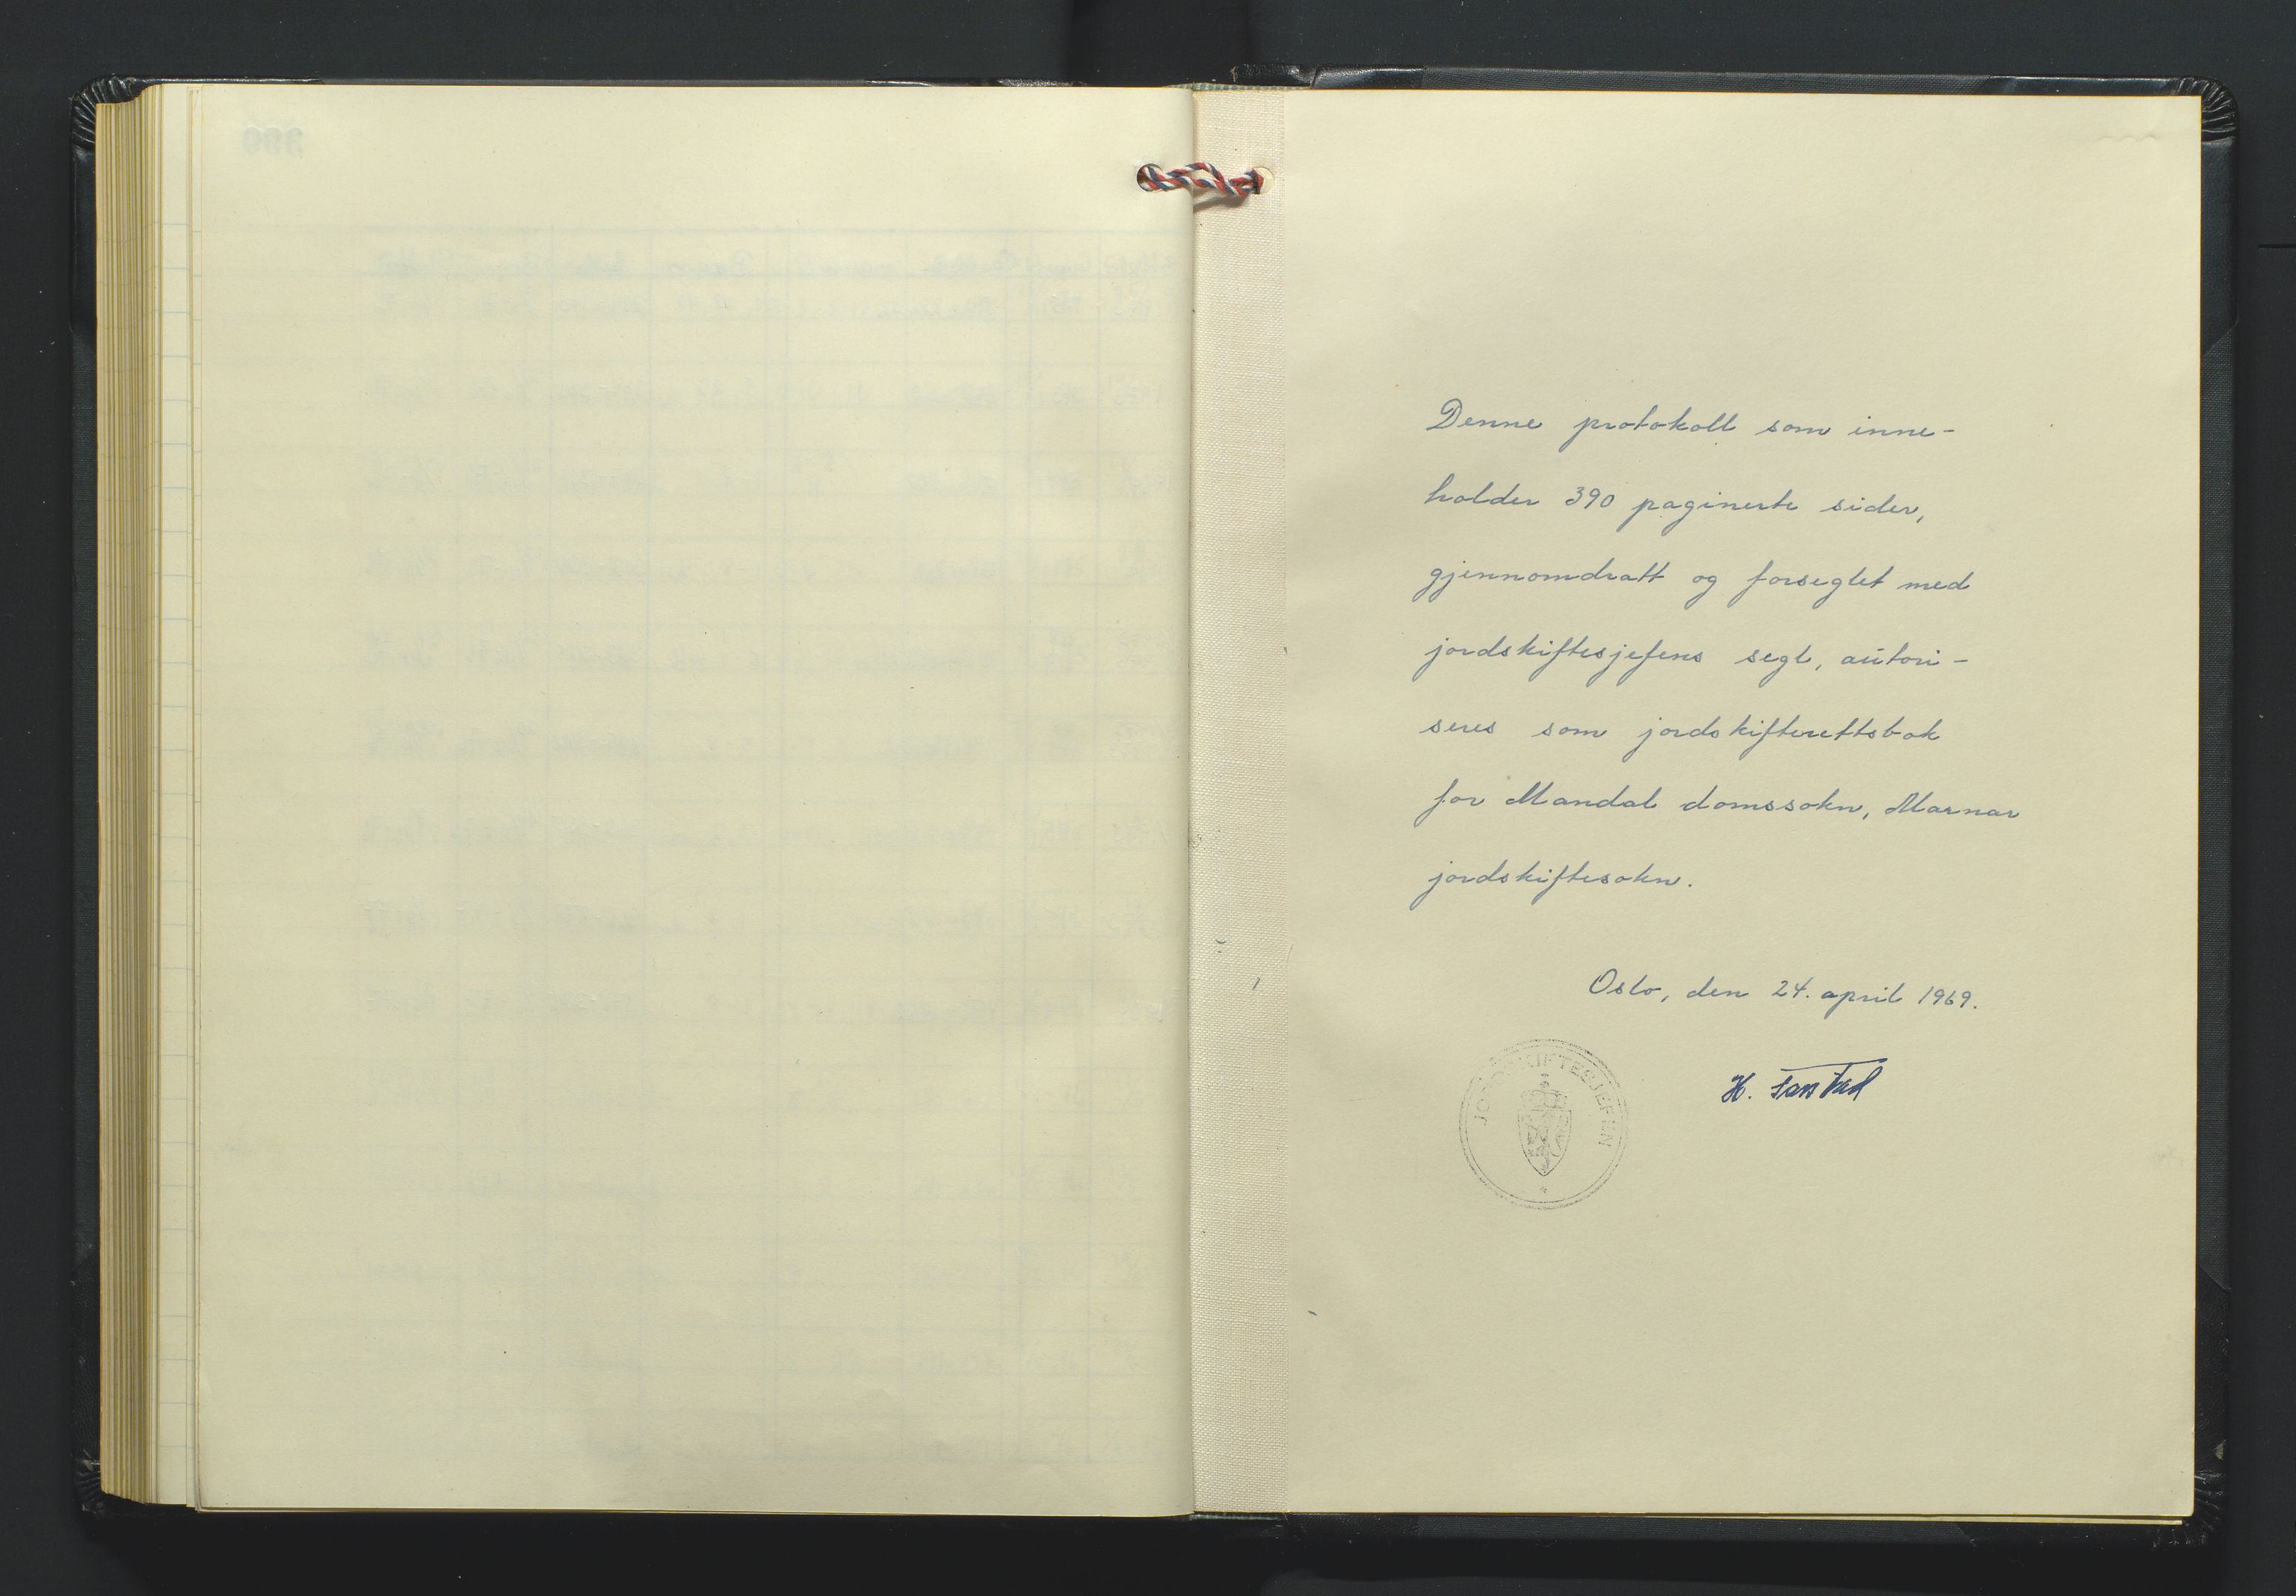 Denne protokoll som inne-
holder 390 paginerte sider,
gjennomdratt og forseglet med
jordskiftesjefens segl, autori-
seres som jordskifterettsbok
for Mandal domssokn, Marnar
jordskiftesokn.
Oslo, den 24. april 1969.
H.
JORDSKIFTESJEFEN